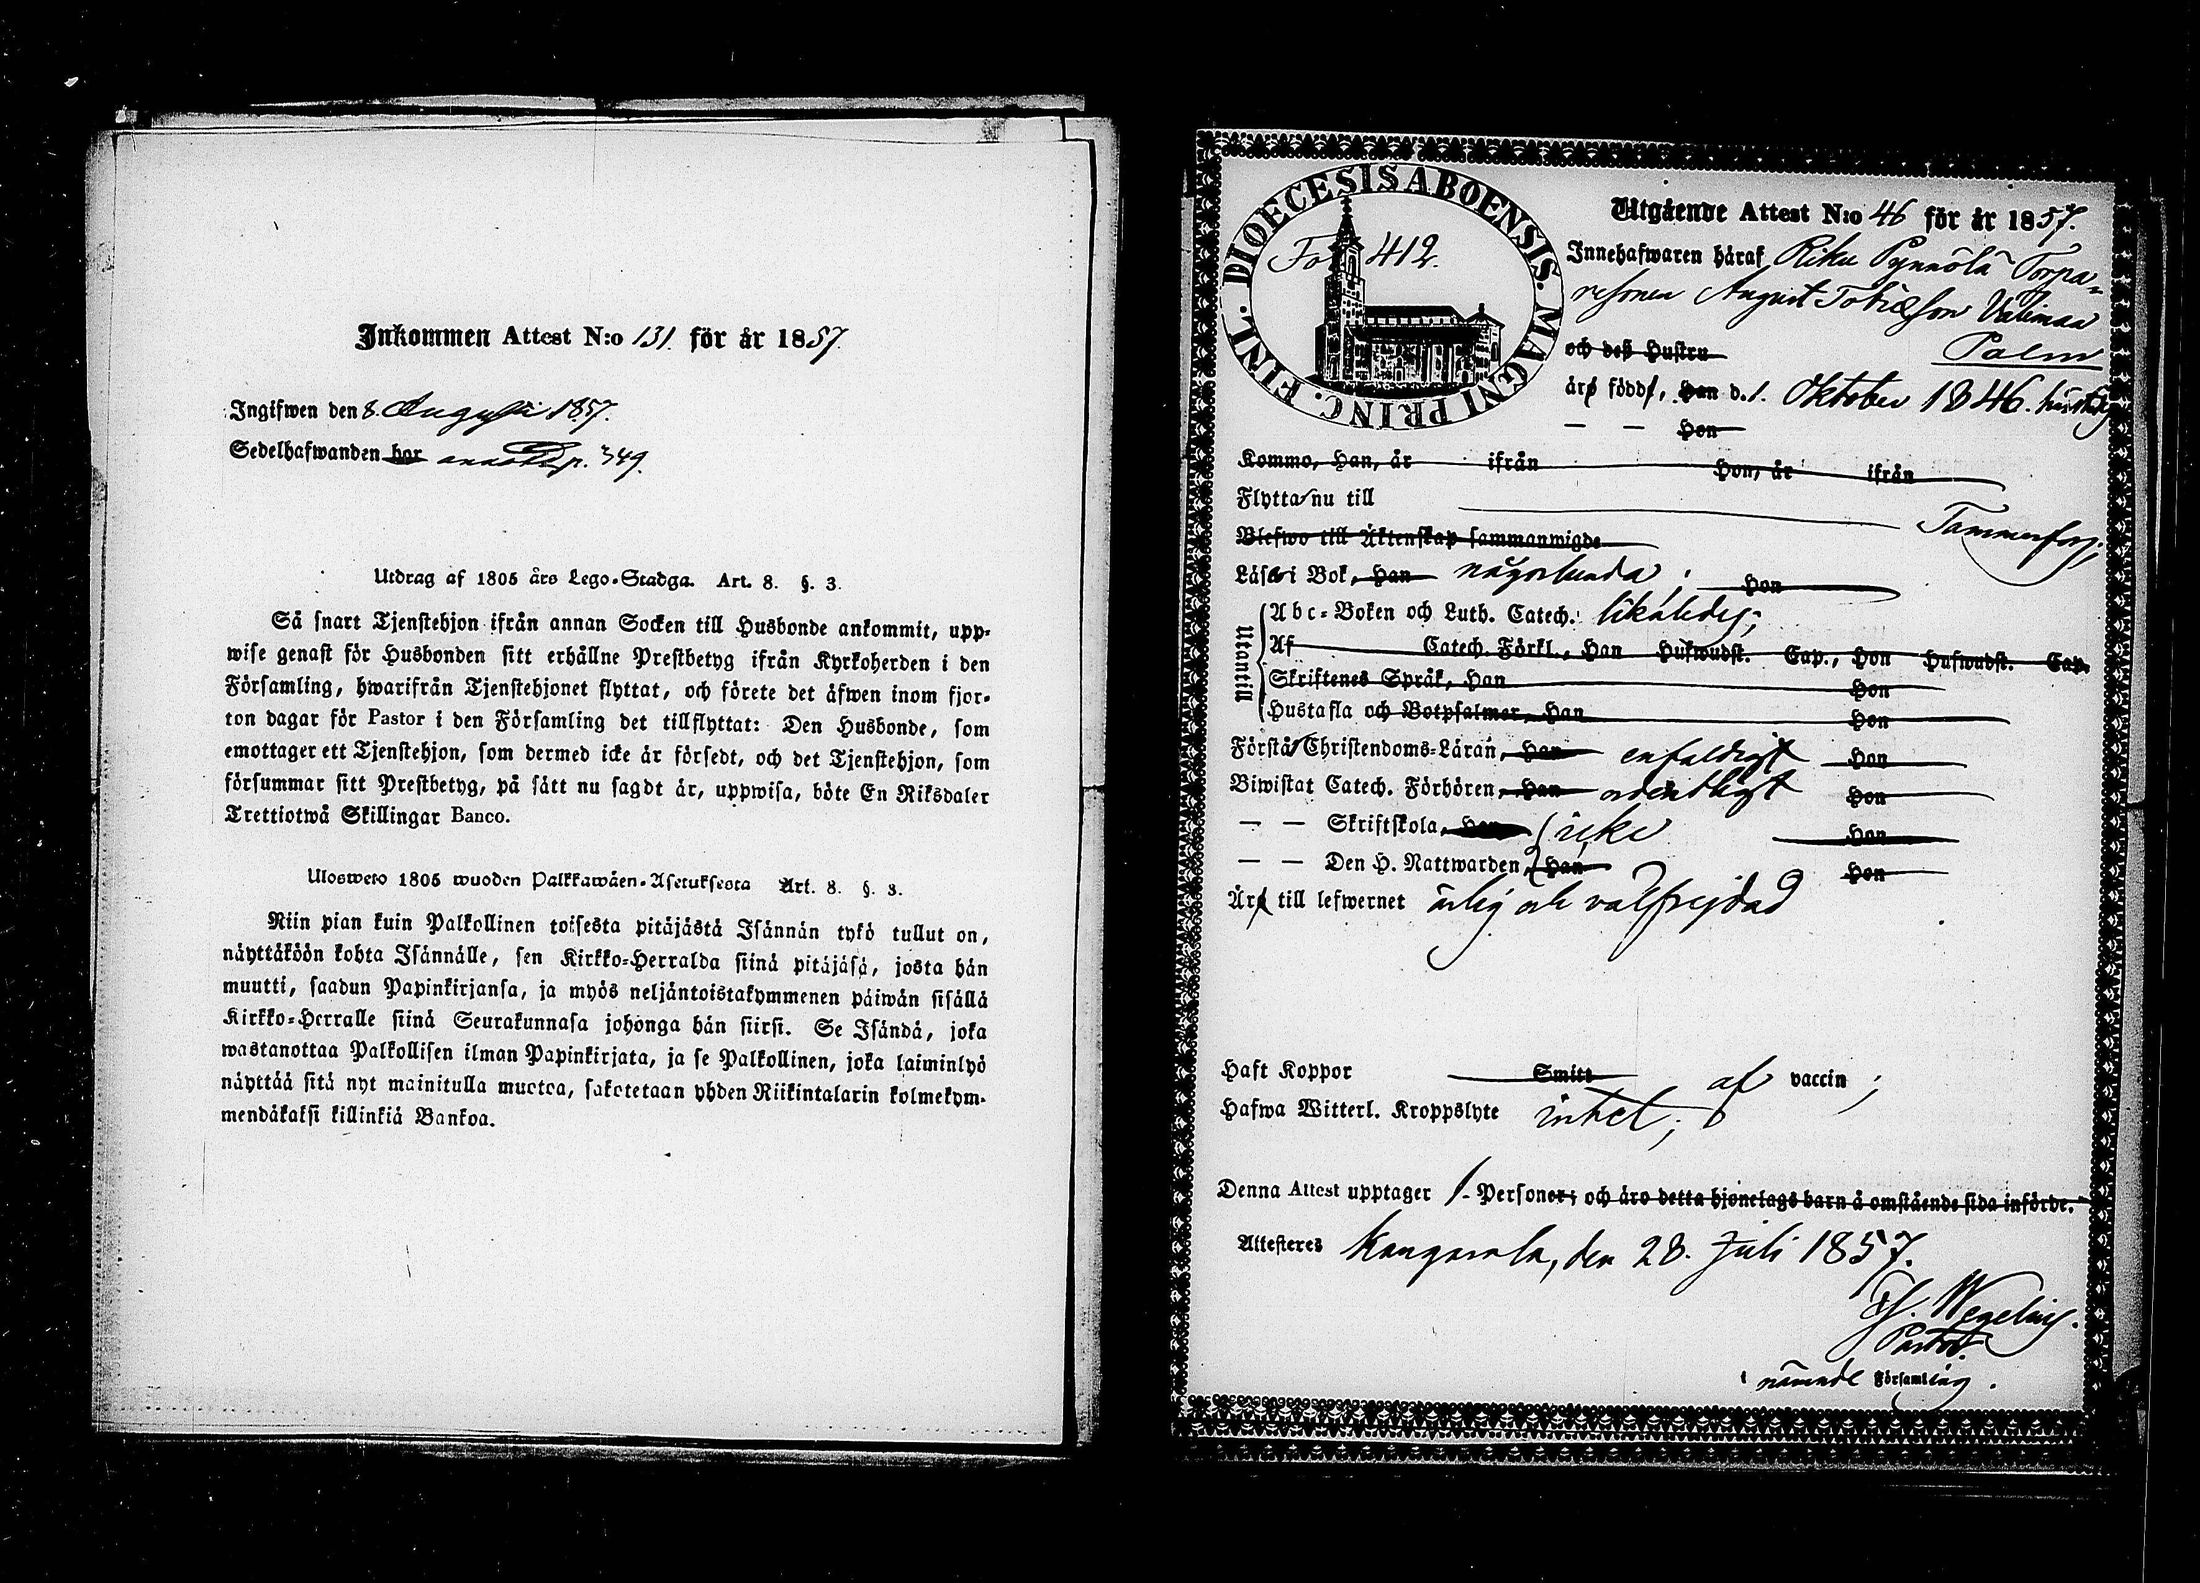 Inkommen Attest N:o 131. för år 1857.
Ingifwen den 8. Augusti 1857.
Sedelhafwanden har annot. p. 349.
Utdrag af 1805 års Lego-Stadga. Art. 8. §. 3.
Så snart Tjenstehjon ifrån annan Socken till Husbonde ankommit, upp-
wise genast för Husbonden sitt erhållne Prestbetyg ifrån Kyrkoherden i den
Församling, hwarifrån Tjenstehjonet flyttat, och förete det äfwen inom fjor-
ton dagar för Pastor i den Församling det tillflyttat: Den Husbonde, som
emottager ett Tjenstehjon, som dermed icke är försedt, och det Tjenstehjon, som
försummar sitt Prestbetyg, på sätt nu sagdt är, uppwisa, böte En Riksdaler
Trettiotwå Skillingar Banco.
Uloswero 1805 wuoden Palkkawäen-Asetuksesta Art. 8. §. 3.
Niin pian kuin Palkollinen toisesta pitäjästä Isännän tykö tullut on,
näyttäköön kohta Isännälle, sen Kirkko-Herralda siinä pitäjäsä, josta hän
muutti, saadun Papinkirjansa, ja myös neljäntoistakymmenen päiwän sisällä
Kirkko-Herralle siinä Seurakunnasa johonga hän siirsi. Se Isändä, joka
wastanottaa Palkollisen ilman Papinkirjata, ja se Palkollinen, joka laiminlyö
näyttää sitä nyt mainitulla muotoa, sakotetaan yhden Riikintalarin kolmekym-
mendäkaksi killinkiä Bankoa.
DIOECESIS ABOENSIS. MAGNI PRINC. FINL.
Fol 412.
Utgående Attest N:o 46 för år 1857.
Innehafwaren häraf Riku Pynnölä Torpa-
resonen August Tobiæson Välimaa
och deß Hustru Palm
äro födde, Han d. 1. Oktober 1846.
— — Hon
Kommo, Han, år ifrån Hon, år ifrån
Flytta nu till Tammerfors;
Blefwo till Äktenskap sammanwigde
Läsa i Bok, Han någorlunda; Hon
Utantill
Abc-Boken och Luth. Catech. likaledes;
Af Catech. Förkl., Han Hufwudst. Cap., Hon Hufwudst. Cap.
Skriftenes Språk, Han Hon
Hustafla och Botpsalmer, Han Hon
Förstå Christendoms-Läran, Han enfaldigt Hon
Biwistat Catech. Förhören, Han ordentligt Hon
— — Skriftskola, Han icke Hon
— — Den H. Nattwarden, Han Hon
Äro till lefwernet ärlig och välfrejdad
Haft Koppor Smitt af vaccin;
Hafwa Witterl. Kroppslyte intet;
Denna Attest upptager 1 Personer; och äro detta hjonelags barn å omstående sida införde.
Attesteres Kangasala, den 28. Juli 1857.
Wegelius.
Pastor.
i nämnde Församling.